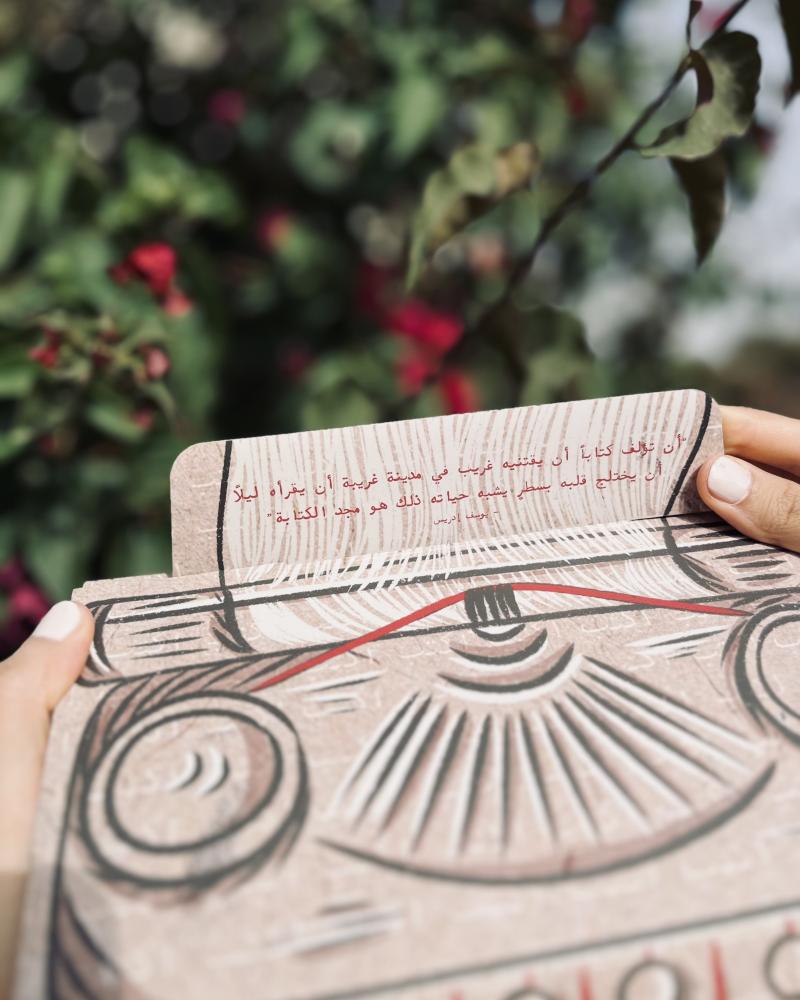 "أن تؤلف كتاباً أن يقتنيه غريب في مدينة غريبة أن يقرأه ليلاً
أن يختلج قلبه بسطر يشبه حياته ذلك هو مجد الكتابة"
- يوسف إدريس